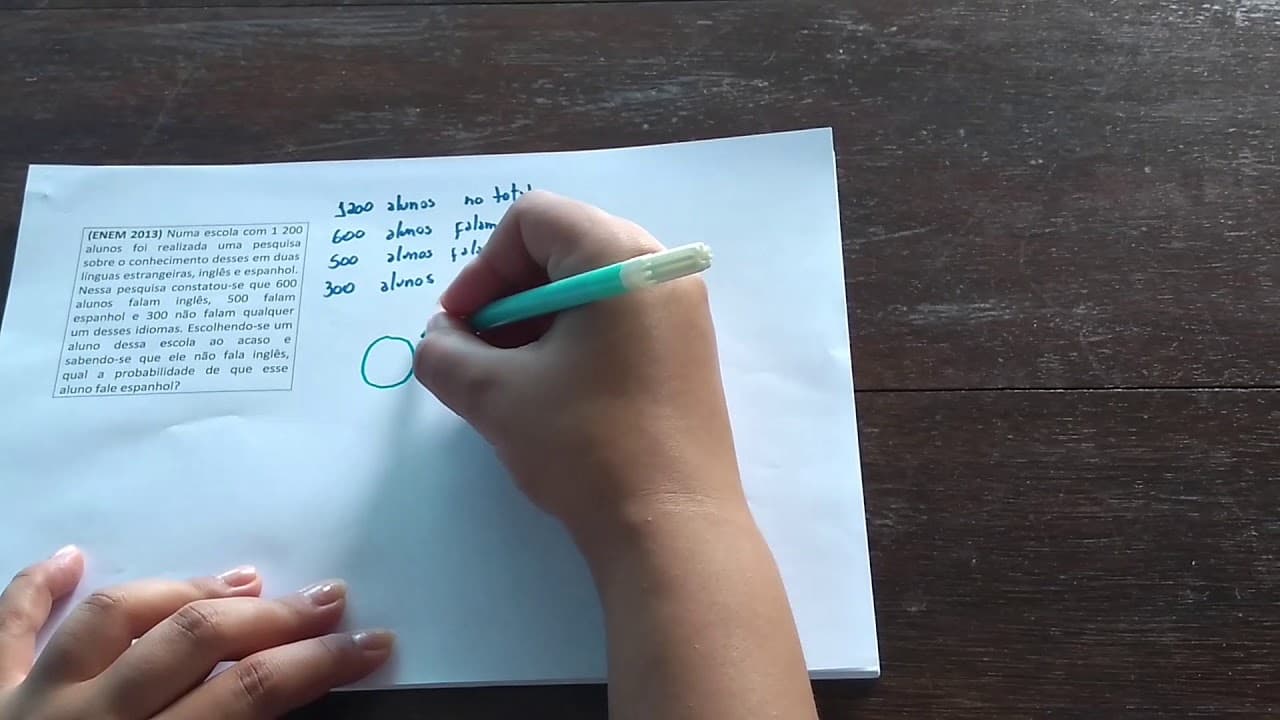 (ENEM 2013) Numa escola com 1 200
alunos foi realizada uma pesquisa
sobre o conhecimento desses em duas
línguas estrangeiras, inglês e espanhol.
Nessa pesquisa constatou-se que 600
alunos falam inglês, 500 falam
espanhol e 300 não falam qualquer
um desses idiomas. Escolhendo-se um
aluno dessa escola ao acaso e
sabendo-se que ele não fala inglês,
qual a probabilidade de que esse
aluno fale espanhol?
1200 alunos no
600 alunos falam
500 alunos
300 alunos